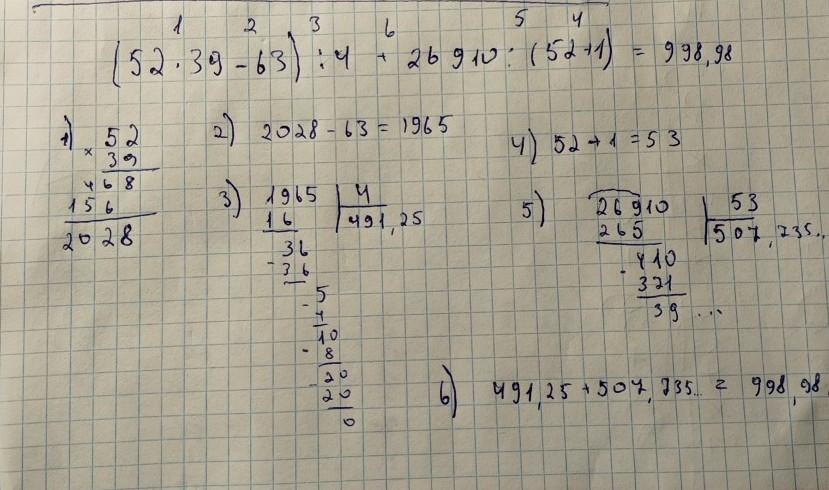 1 2 3 6 5 4
(52 · 39 - 63) : 4 + 26 910 : (52+1) = 998,98
1) 52
× 39
468
156
2028
2) 2028 - 63 = 1965
3) 1965 | 4
16 | 491,25
36
- 36
- 5
4
10
- 8
- 20
20
0
4) 52 + 1 = 53
5) 26910 | 53
265 | 507,735..
- 410
371
39 ...
6) 491,25 + 507,735.. = 998,98.